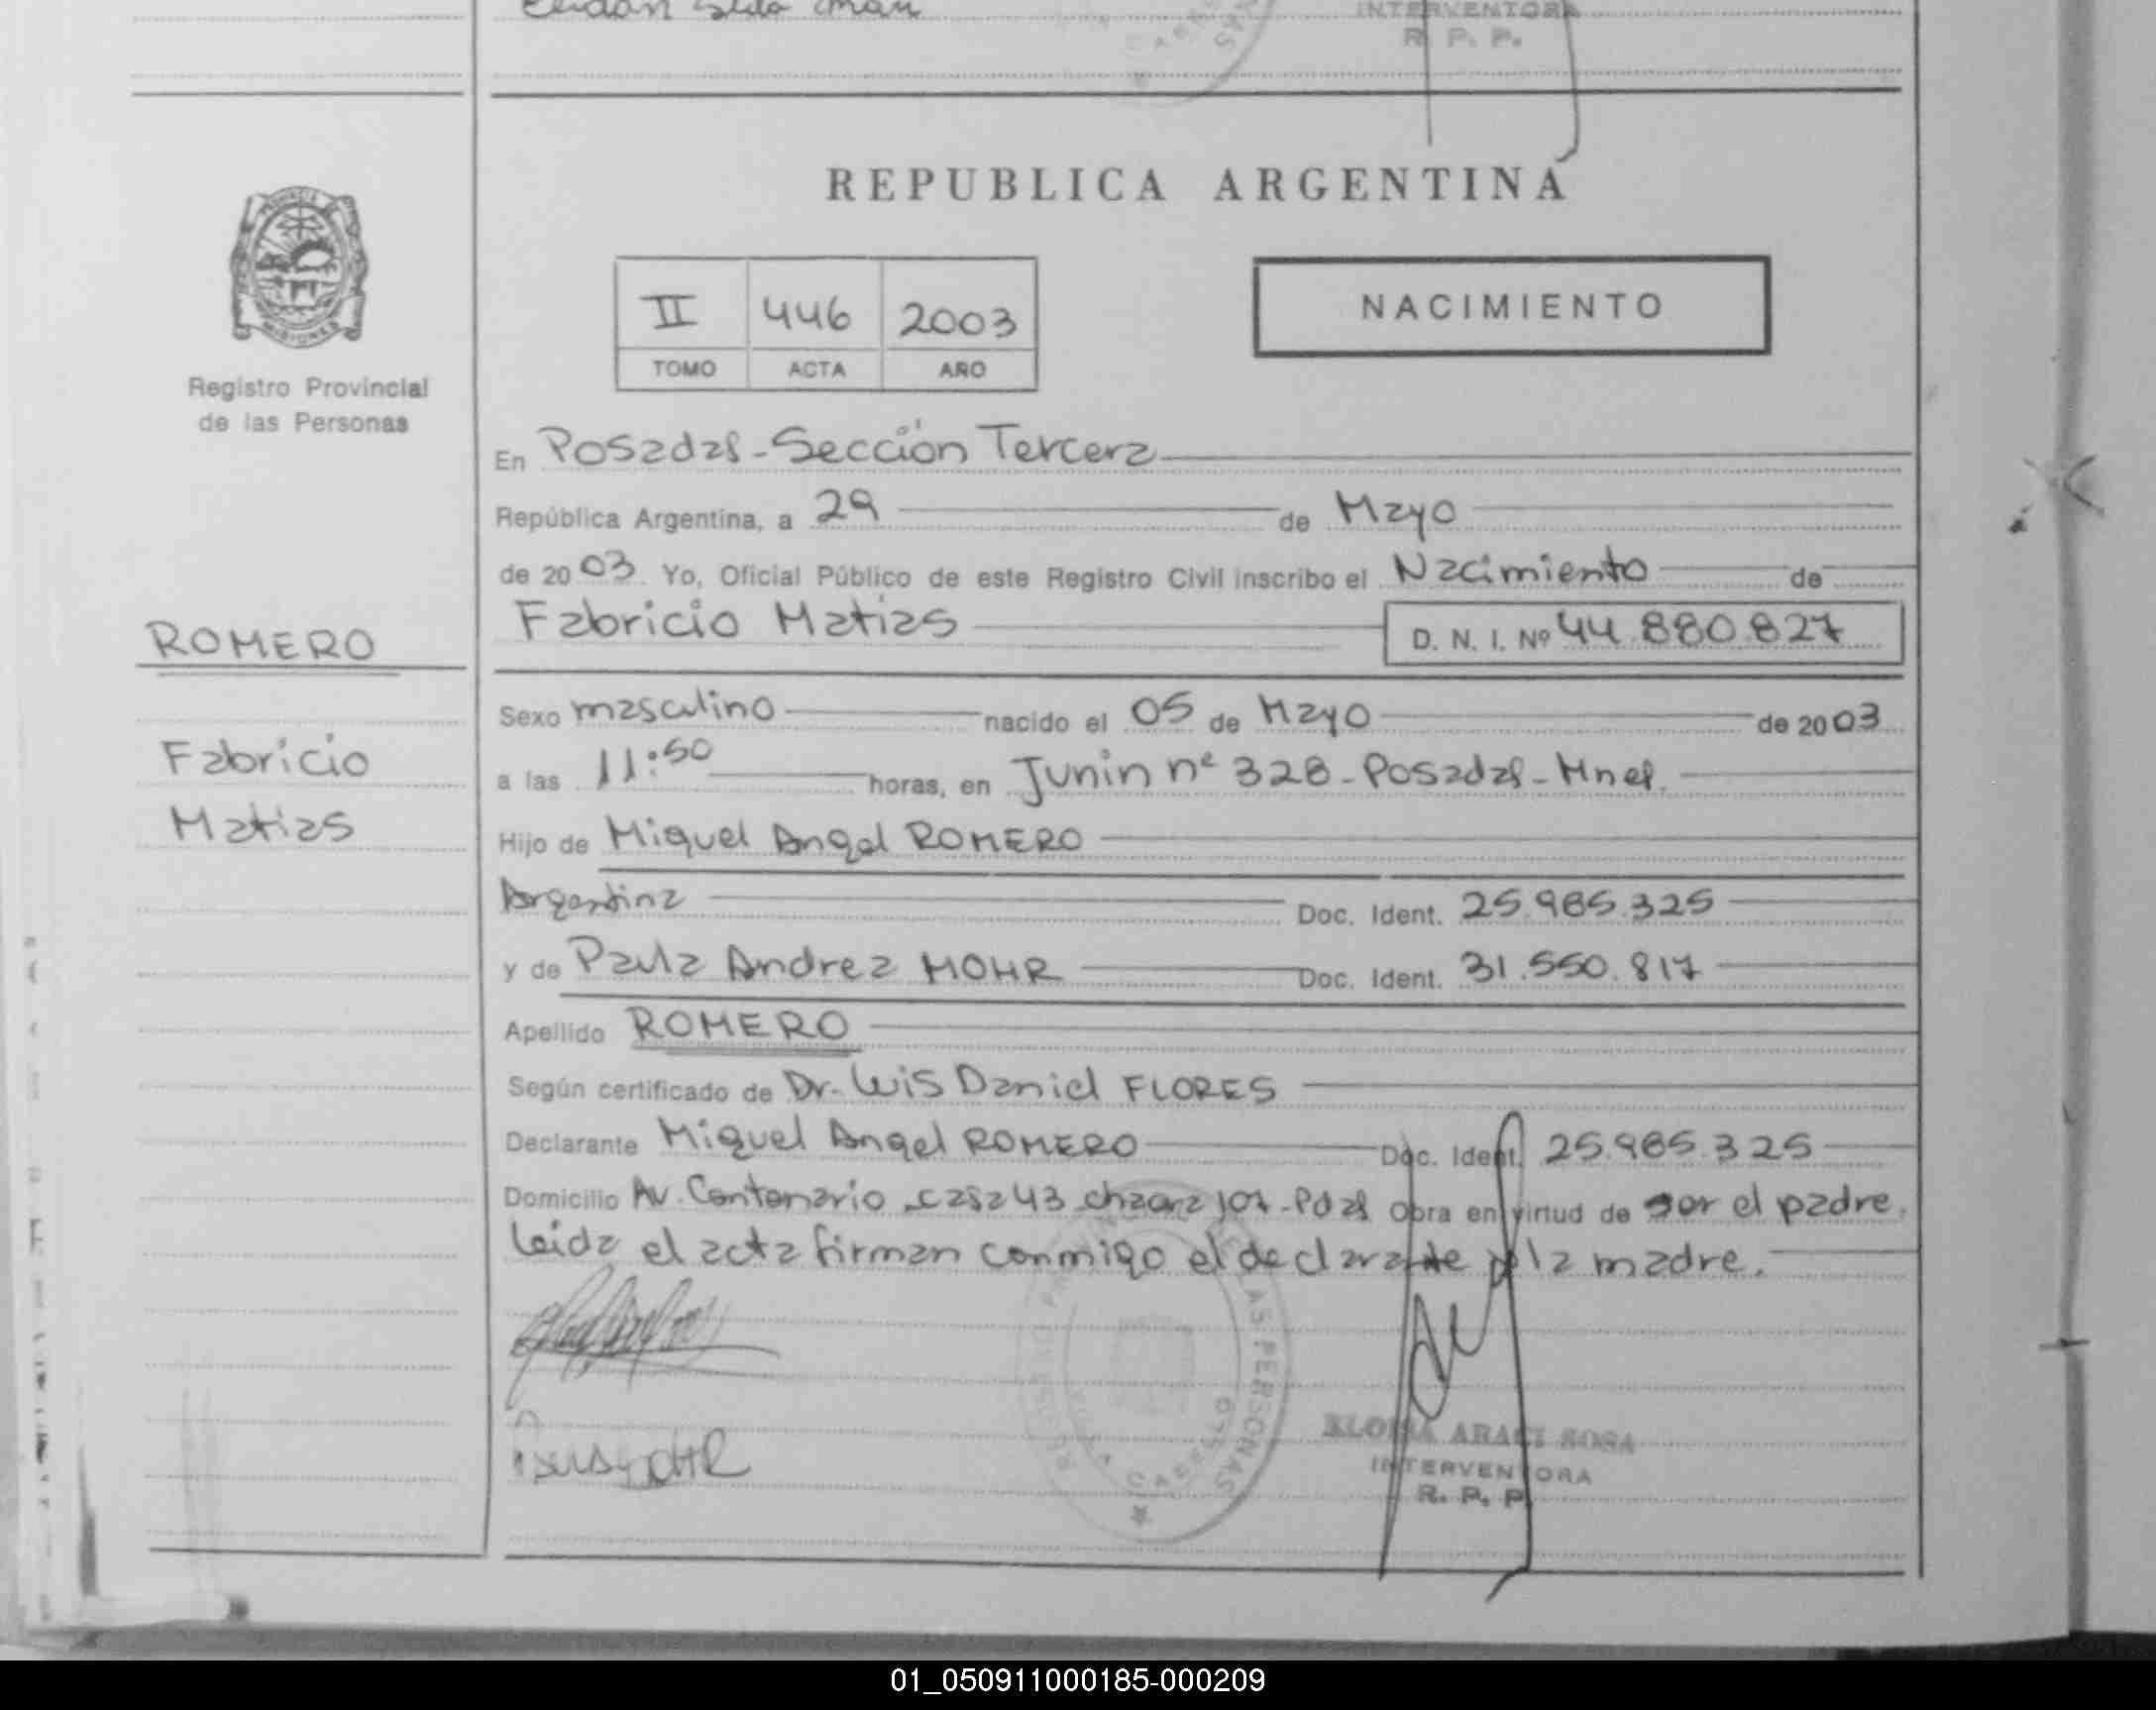 INTERVENTORA
R. P. P.
REPUBLICA ARGENTINA
MISIONES
Registro Provincial
de las Personas
II 446 2003
TOMO ACTA AÑO
NACIMIENTO
En Posadas - Sección Tercera
República Argentina, a 29 de Mayo
de 2003. Yo, Oficial Público de este Registro Civil inscribo el Nacimiento de
Fabricio Matias D. N. I. Nº 44.880.827
ROMERO
Fabricio
Matias
Sexo masculino nacido el 05 de Mayo de 2003
a las 11:50 horas, en Junin nº 328 - Posadas - Mnes.
Hijo de Miguel Angel ROMERO
Argentina Doc. Ident. 25.985.325
y de Paula Andrea MOHR Doc. Ident. 31.550.817
Apellido ROMERO
Según certificado de Dr. Luis Daniel FLORES
Declarante Miguel Angel ROMERO Doc. Ident. 25.985.325
Domicilio Av. Centenario casa 43 chacra 107 - Pdas Obra en virtud de ser el padre.
Leida el acta firman conmigo el declarante y la madre.
DE LAS PERSONAS
ELOISA ARACI SOSA
INTERVENTORA
R. P. P.
01_050911000185-000209